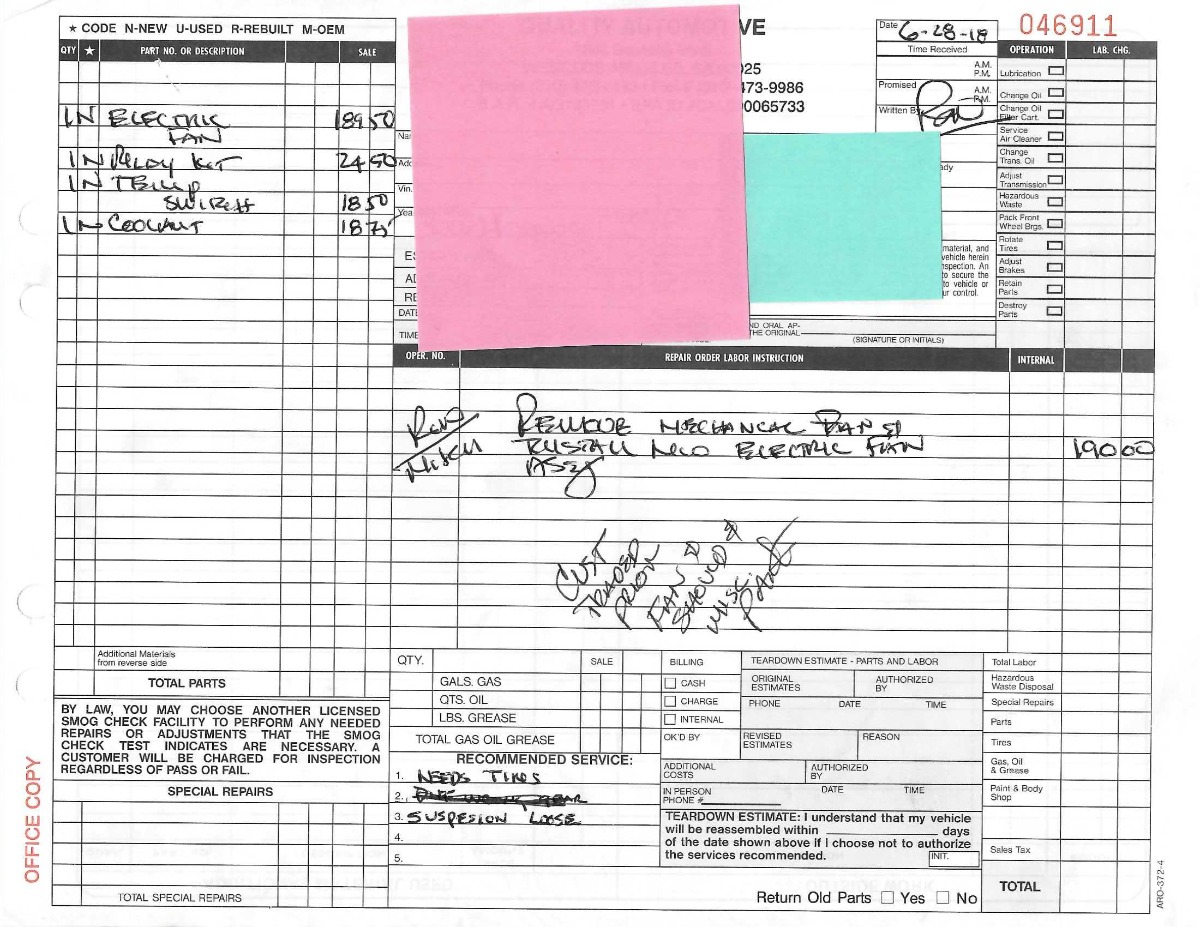 ★ CODE N-NEW U-USED R-REBUILT M-OEM
QTY ★ PART NO. OR DESCRIPTION SALE
1 N ELECTRIC 189 50
FAN
1 N RELAY KIT 24 50
1 N TEMP
SWITCH 18 50
1 N COOLANT 18 75
Additional Materials
from reverse side
TOTAL PARTS
BY LAW, YOU MAY CHOOSE ANOTHER LICENSED
SMOG CHECK FACILITY TO PERFORM ANY NEEDED
REPAIRS OR ADJUSTMENTS THAT THE SMOG
CHECK TEST INDICATES ARE NECESSARY. A
CUSTOMER WILL BE CHARGED FOR INSPECTION
REGARDLESS OF PASS OR FAIL.
SPECIAL REPAIRS
TOTAL SPECIAL REPAIRS
OFFICE COPY
VE
025
473-9986
00065733
Date 6-28-18
Time Received
A.M.
P.M.
Promised
A.M.
P.M.
Written By
046911
OPERATION LAB. CHG.
Lubrication
Change Oil
Change Oil
Filter Cart.
Service
Air Cleaner
Change
Trans. Oil
Adjust
Transmission
Hazardous
Waste
Pack Front
Wheel Brgs.
Rotate
Tires
Adjust
Brakes
Retain
Parts
Destroy
Parts
Vin.
Yea
ES
AD
RE
DATE
TIME
ady
material, and
vehicle herein
nspection. An
to secure the
to vehicle or
ur control.
ND ORAL AP-
THE ORIGINAL
(SIGNATURE OR INITIALS)
OPER. NO. REPAIR ORDER LABOR INSTRUCTION INTERNAL
REMOVE MECHANCAL FAN &
INSTALL NEW ELECTRIC FAN 190 00
ASSY
CUST
TRADED
PRIOR
FAN &
SHROUD &
MISC.
PARTS
QTY. SALE
GALS. GAS
QTS. OIL
LBS. GREASE
TOTAL GAS OIL GREASE
RECOMMENDED SERVICE:
1. NEEDS TIRES
2.
3. SUSPESION LOOSE
4.
5.
BILLING
CASH
CHARGE
INTERNAL
OK'D BY
TEARDOWN ESTIMATE - PARTS AND LABOR
ORIGINAL
ESTIMATES
AUTHORIZED
BY
PHONE DATE TIME
REVISED
ESTIMATES
REASON
ADDITIONAL
COSTS
AUTHORIZED
BY
IN PERSON
PHONE #
DATE TIME
TEARDOWN ESTIMATE: I understand that my vehicle
will be reassembled within ____ days
of the date shown above if I choose not to authorize
the services recommended.
INIT.
Return Old Parts Yes No
Total Labor
Hazardous
Waste Disposal
Special Repairs
Parts
Tires
Gas, Oil
& Grease
Paint & Body
Shop
Sales Tax
TOTAL
ARO-372-4